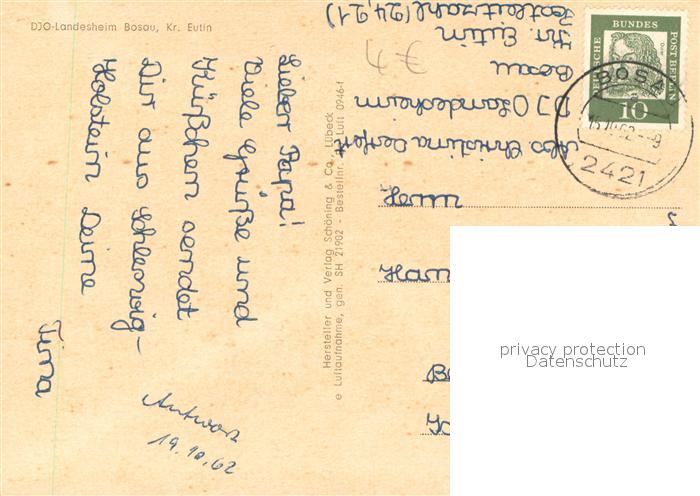 DJO-Landesheim Bosau, Kr. Eutin
Lieber Papa!
Viele Grüße und
Küßchen sendet
Dir aus Schleswig-
Holstein Deine
Tima
Antwort
19.10.62
Hersteller und Verlag Schöning & Co., Lübeck
Luftaufnahme, gen. SH 21902 - Bestellnr. Luft 0946-f
Abs. Christima
DJO Landesheim
Bosau
Kr. Eutin
Postleitzahl (24,21)
DEUTSCHE BUNDESPOST BERLIN
10
BOSAU
2421
Ham
privacy protection
Datenschutz